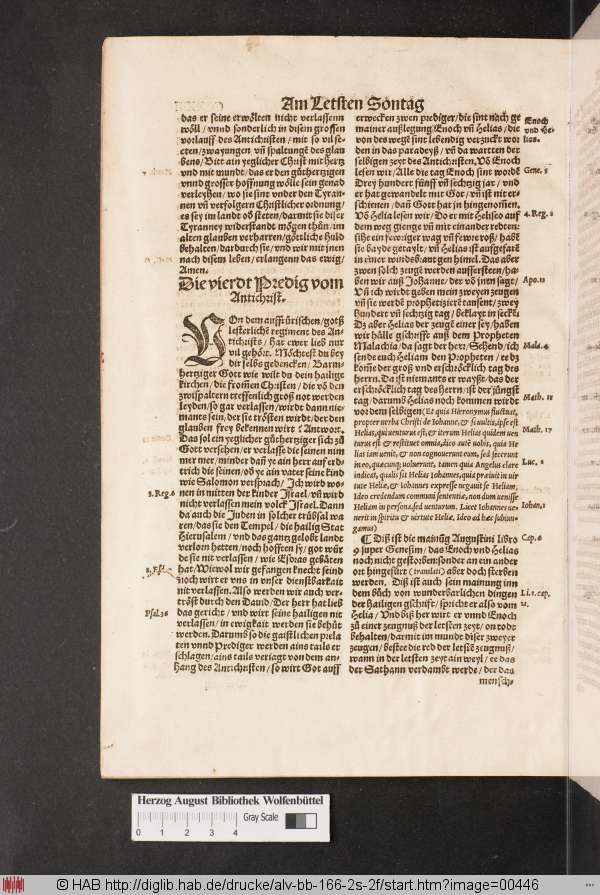 Am Letsten Sontag
das er seine erwölten nicht verlassenn
wöll / vnnd sonderlich in disem grossen
vorlauff des Antichristen / mit so vil ste-
ten / zwayungen / vñ spaltunge des glau
bens / Bitt ain yeglicher Christ mit hertz
vnd mit mundt / das er den gůthertzigen
vnnd grosser hoffnung wölle sein genad
verleyhen / wo sie sint vnder den Tyran-
nen vñ verfolgern Christlicher ordnung /
es sey im landt ob steten / darmit sie diser
Tyranney widerstandt mögen thůn / im
alten glauben verharren / götliche huld
behalten / dardurch sie / vnd wir mit jnen
nach disem leben / erlangenn das ewig /
Amen.
Die vierdt Predig vom
Antichrist.
VOn dem auffrürischen / gotß
lesterlichē regiment des An-
tichrists / hat ewer lieb nur
vil gehört. Möchtest du bey
dir selbs gedencken / Barm-
hertziger Gott wie wilt du dein hailige
kirchen / die from̃en Christen / die võ den
zwispaltern trefflich groß not werden
leyden / so gar verlassen / wirdt dann nie-
mants sein / der sie trösten wirdt / der den
glauben frey bekennen wirt? Antwort.
Das sol ein yeglicher gůthertziger sich zů
Gott versehen / er verlasse die seinen nim
mer mer / minder dañ ye ain herr auf erd-
trich die seinen / ob ye ain vater seine kind
wie Salomon versprach / Jch wird wo-
nen in mitten der kinder Jsrael / vñ wird
nicht verlassen mein volck Jsrael. Dann
da auch die Juden in solcher trübsal wa
ren / das sie den Tempel / die hailig Stat
Hierusalem / vnd das gantz gelobt landt
verlorn hetten / noch hofften sy / got würd
de sie nit verlassen / wie Esdras gebäten
hat / Wiewol wir gefangen knecht seind
noch wirt er vns in vnser dienstbarkait
nit verlassen. Also werden wir auch ver-
tröst durch den Dauid / Der herr hat lieb
das gericht / vnd wirt seine hailigen nit
verlassen / in ewigkait werden sie behüt
werden. Darumb so die gaistlichen prela
ten vnnd Prediger werden ains tails er
schlagen / ains tails veriagt von dem an-
hang des Antichristen / so wirt Got auff
3. Reg. 6
Psal. 36
erwecken zwen prediger / die sint nach ge
mainer außlegung / Enoch vñ Helias / die
von des wegē sint lebendig verzuckt wor
den in das paradeyß / vñ da wartten der
selbigen zeyt des Antichristen. Võ Enoch
lesen wir / Alle die tag Enoch sint wordē
Drey hundert fünff vñ sechtzig jar / vnd
er hat gewandelt mit Got / vñ ist nit er-
schienen / dañ Gott hat jn hingenom̃en.
Võ Helia lesen wir / Do er mit Heliseo auf
dem weg gienge vñ mit einander redten:
sihe ein fewriger wag vñ fewre roß / habē
sie bayde getaylt / vñ Helias ist auffgfarē
in einer windsbraut gen himel. Das aber
zwen solch zeugē werden aufferstehen / ha
ben wir auß Johanne / der võ jnen sagt /
Vñ ich wirdt geben mein zweyen zeugen
vñ sie werdē prophetizierē tausent / zwey
hundert vñ sechzig tag / beklayt in seckē
Dz aber Helias der zeugē einer sey / haben
wir hälle gschrifft auß dem Propheten
Malachia / da sagt der herr / Sehend / ich
sende euch Heliam den Propheten / ee dz
kom̃e der groß vnd erschröcklich tag des
herrn. Da ist niemants er wayßt / das der
erschröcklich tag des herrn / ist der jüngst
tag / darumb Helias noch kommen wirdt
vor dem selbigen
indicat, qualis sit Helias Iohannes, quia præiuit in uir
tute Heliæ, & Iohannes expresse negauit se Heliam.
Ideo credendum communi sententiæ, non dum uenisse
Heliam in persona, sed uenturum. Licet Iohannes ue-
nerit in spiritu & uirtute Heliæ. Ideo ad hæc subiun-
gamus)
¶ Diß ist die mainũg Augustini libro
9 super Genesim / das Enoch vnd Helias
noch nicht gestorben: sonder an ein ander
ort hingefürt (translati) aber doch sterben
werden. Diß ist auch sein mainung inn
dem bůch von wunderbarlichen dingen
der hailigen gschrifft / spricht er also vom
Helia / Vnd biß her wirt er vnnd Enoch
zů einer zeugnuß der letsten zeyt / on todt
behalten / darmit im mundt diser zweyer
zeugen / bestee die red der letstē zeugnuß /
wann in der letsten zeyt ain weyl / ee das
der Sathann verdambt werde / der das
mensch-
Enoch
vnd He-
lias.
Gene. 5
4. Reg. 2
Apo. 11
Mala. 4
Math. 11
Math. 17
Luc. 1
Iohan. 1
Cap. 6
Li. 1. cap.
Herzog August Bibliothek Wolfenbüttel
Gray Scale
0 1 2 3 4
© HAB http://diglib.hab.de/drucke/alv-bb-166-2s-2f/start.htm?image=00446